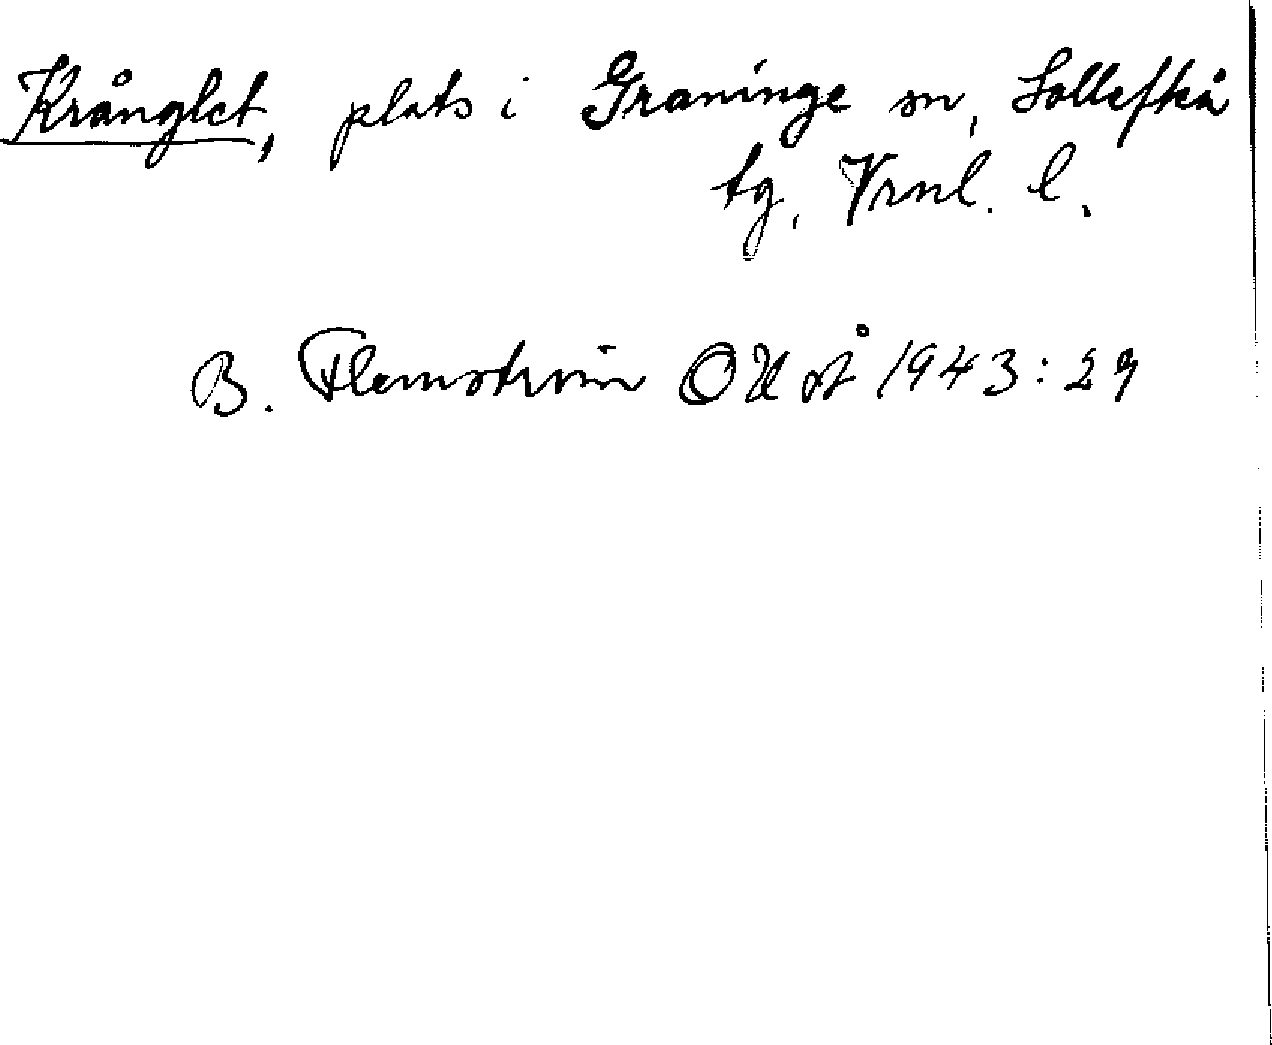 Krånglet, plats i Graninge sn, Sollefteå
tg, Vrnl. l.
B. Flemström OUÅ 1943:29